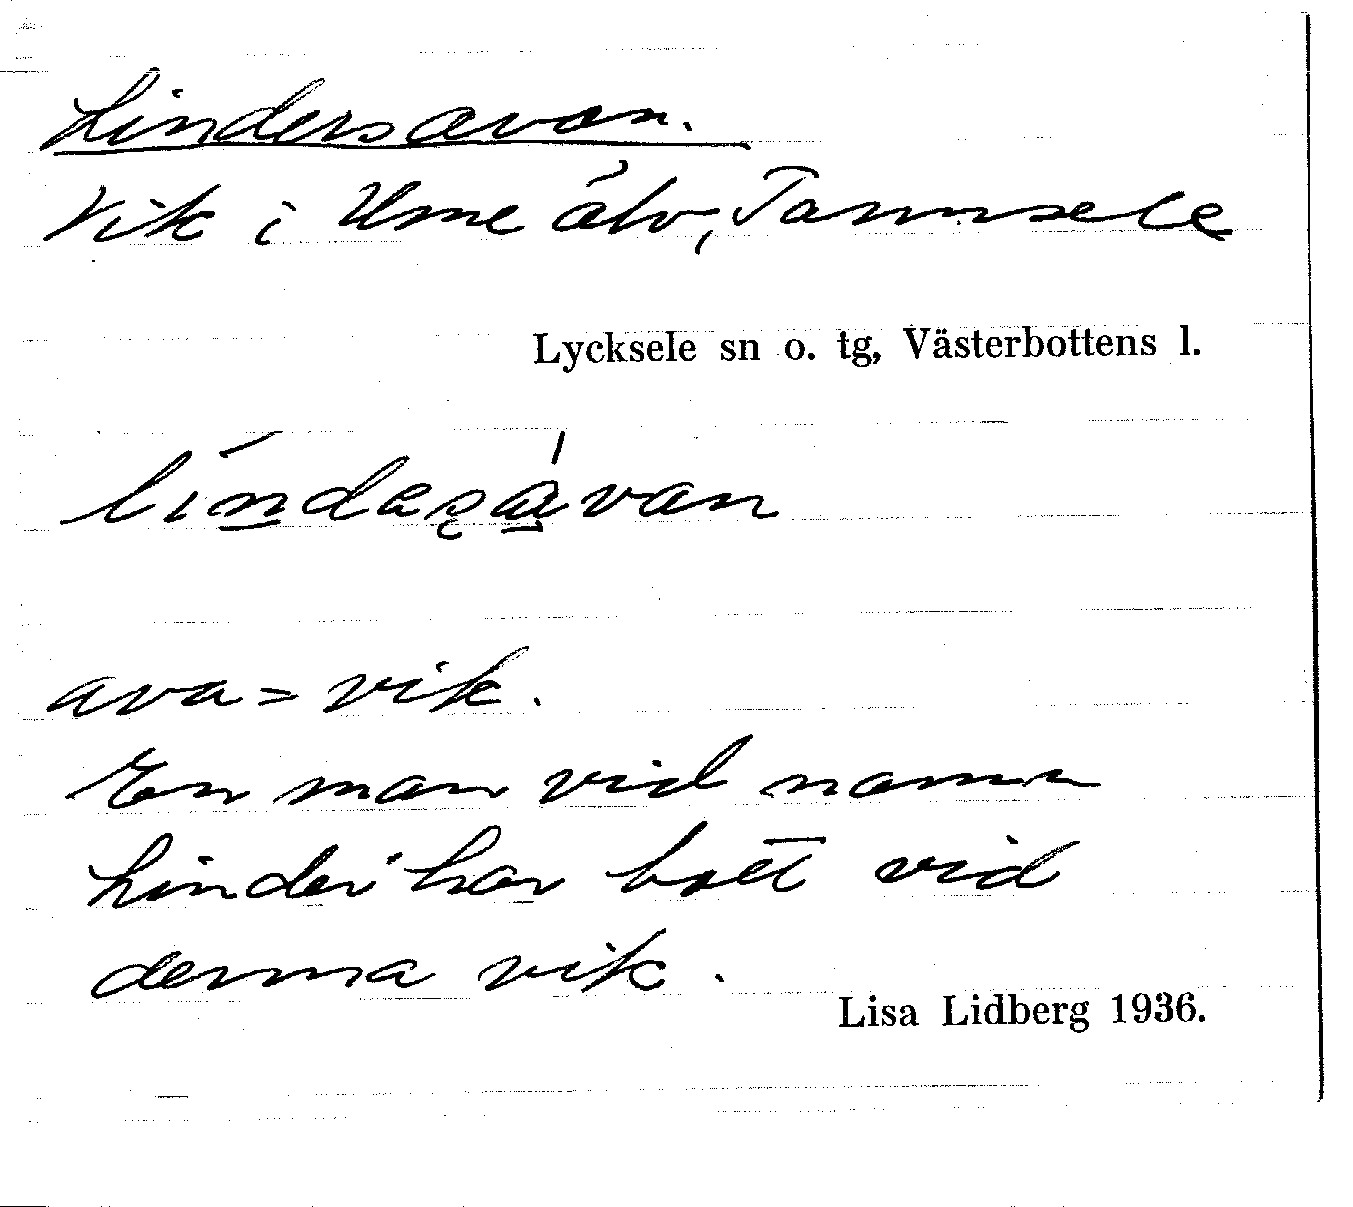 Lindersavan.
Vik i Ume älv, Tannsele
Lycksele sn o. tg, Västerbottens l.
ava = vik.
En man vid namn
Linder har bott vid
denna vik.
Lisa Lidberg 1936.